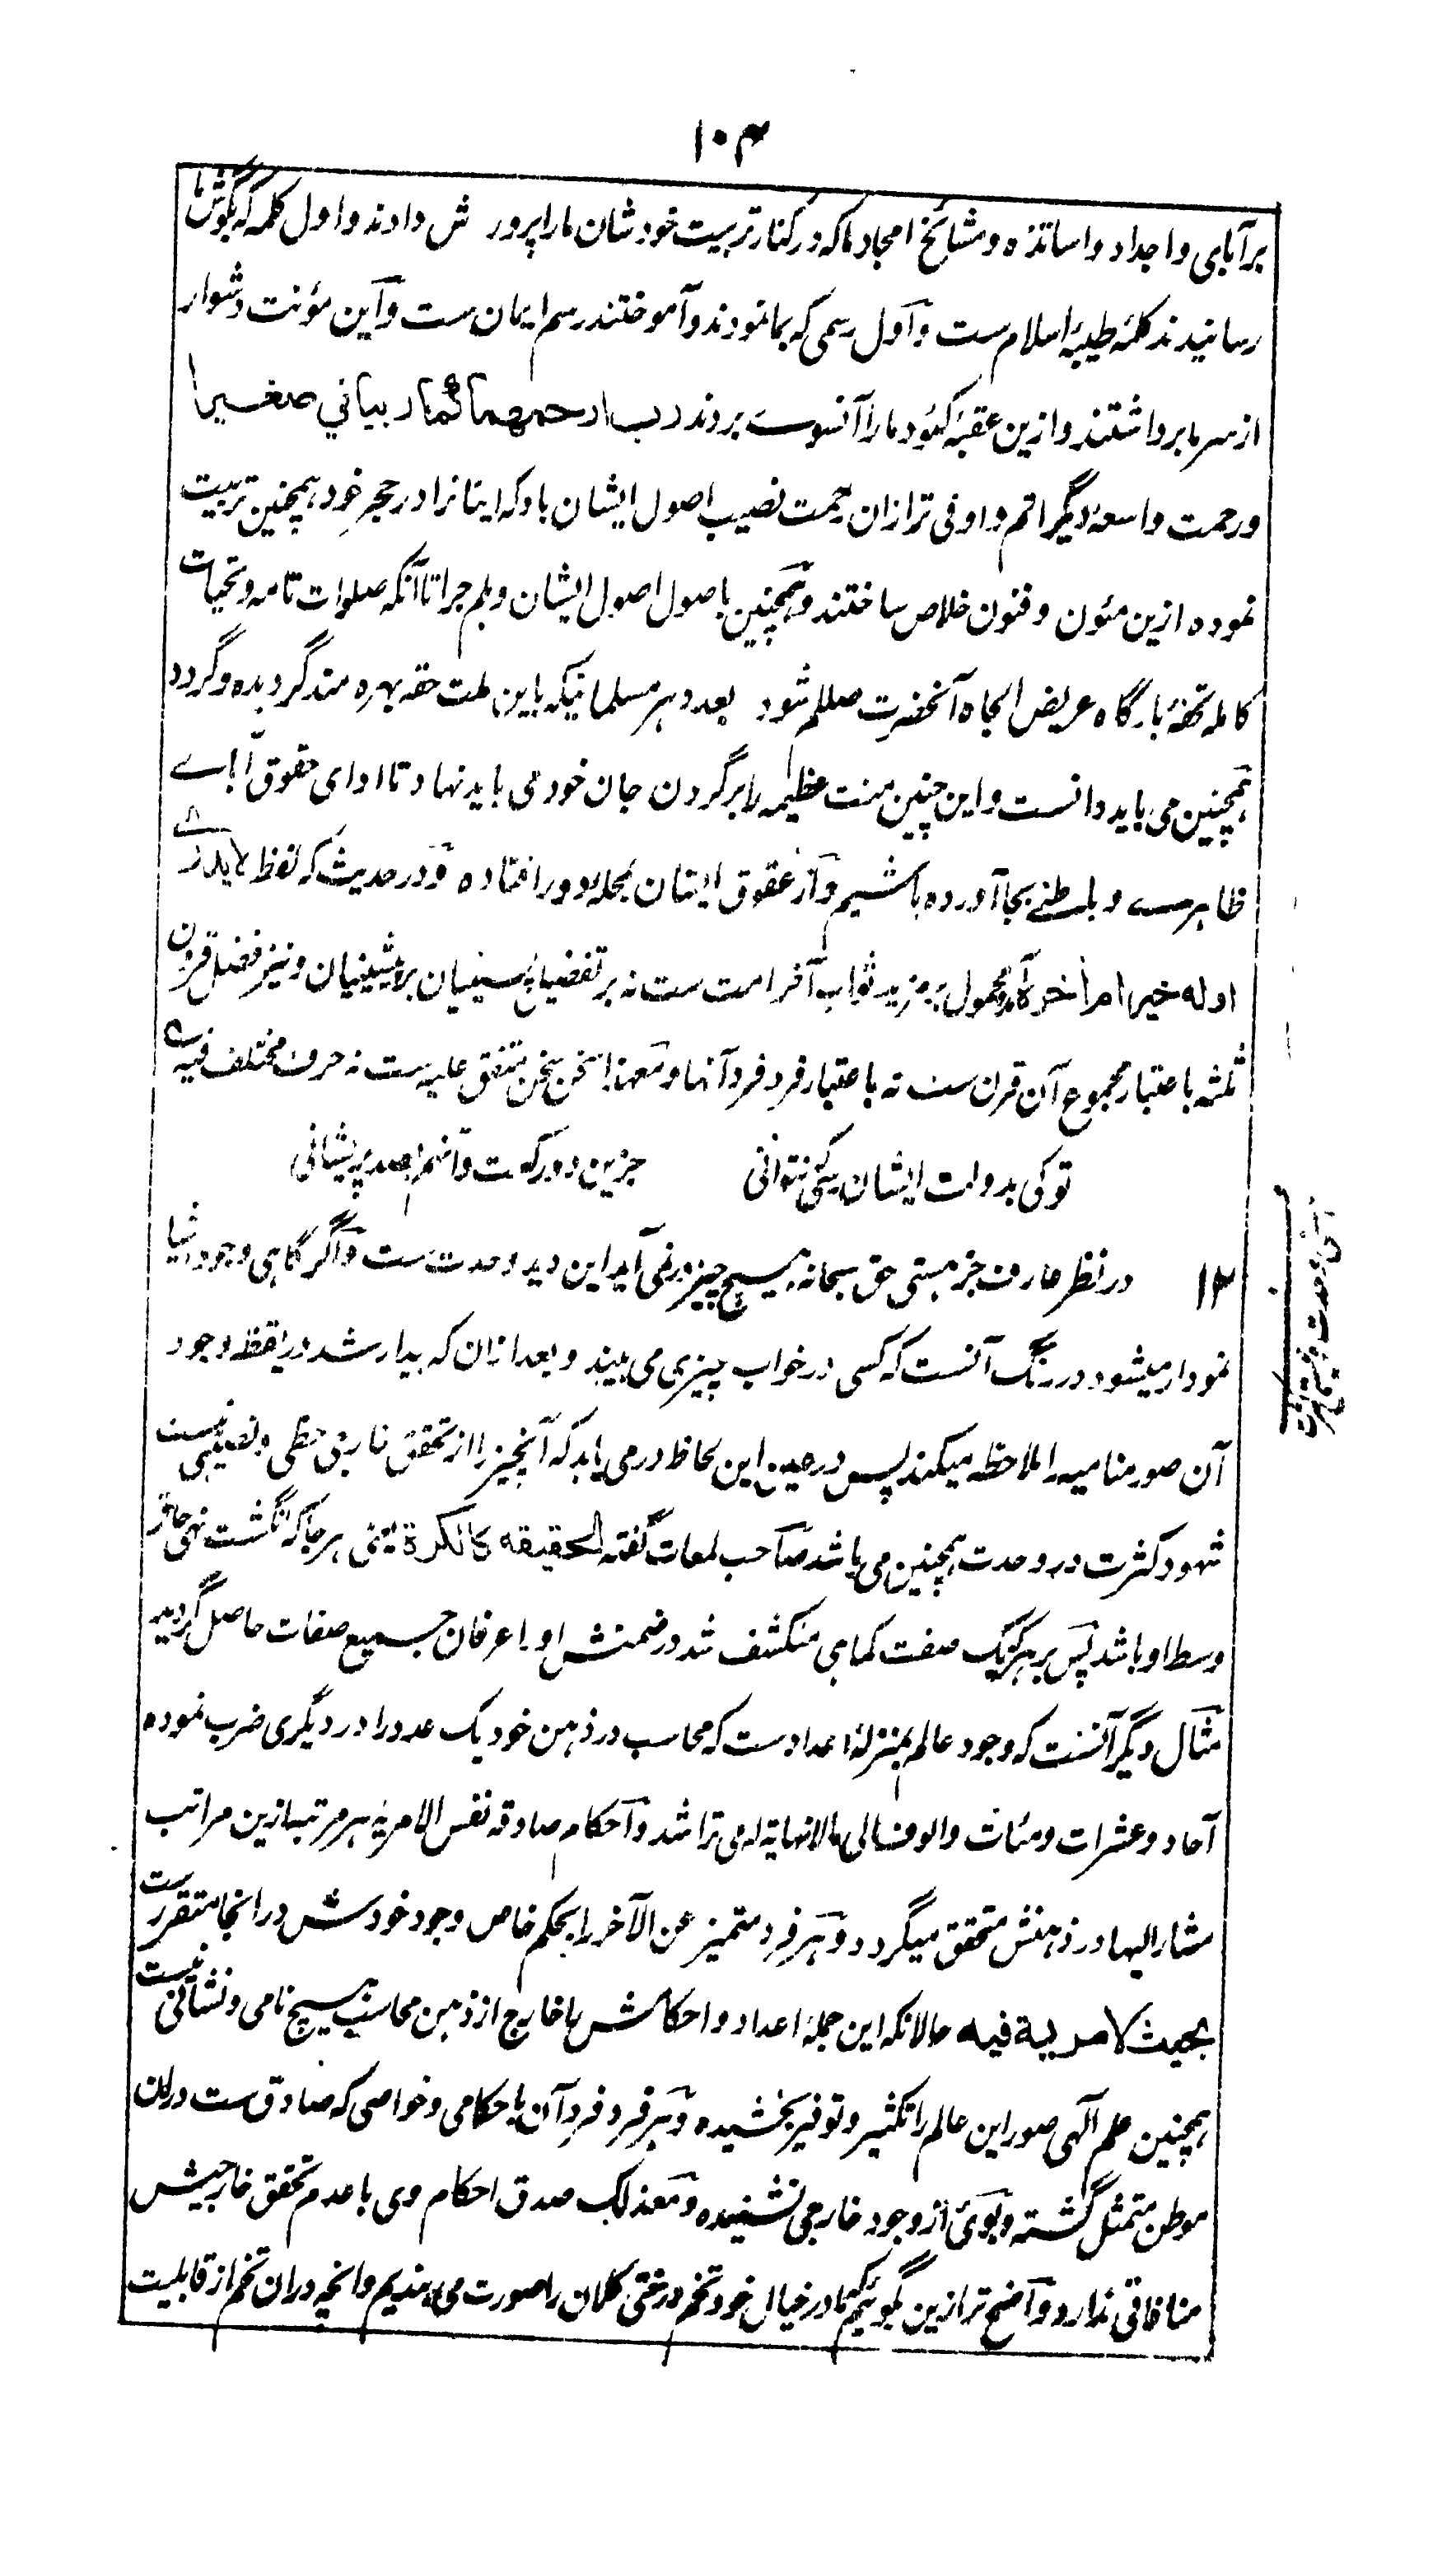 ۱۰۴
بر آبای و اجداد و اساتذه و مشایخ امجاد ما که در کنار تربیت خود شان ما را پرورش دادند و اول کلمه که بگوش ما
رسانیدند کلمهٔ طیبهٔ اسلام ست و اول رسمی که بما نمودند و آموختند رسم ایمان ست و این مؤنت دشوار
از سر ما برداشتند و ازین عقبهٔ کئود ما را آنسوے بردند رب ارحمهما کما ربیانی صغیرا
و رحمت واسعهٔ دیگر اتم و اوفی تر ازان رحمت نصیب اصول ایشان باد که اینانرا در حجر خود همچنین تربیت
نموده ازین مئون و فنون خلاص ساختند و همچنین باصول اصول ایشان و هلم جرا تا آنکه صلوات تامه و تحیات
کامله تحفهٔ بارگاه عریض الجاه آنحضرت صللم شود بعده هر مسلمانیکه باین ملت حقه بهره مند گردیده و گردد
همچنین می باید دانست و این چنین منت عظیمه را بر گردن جان خود می باید نهاد تا ادای حقوق آباے
ظاہرے و باطنے بجا آورده باشیم و از عقوق ایشان بمجله دور افتاده و در حدیث که لفظ لا یدرے
اوله خیر ام اخره آمده محمول بر مزید ثواب آخر امت ست نه بر تفضیل پسینیان بر پیشینیان و نیز فضل قرون
ثلثه باعتبار مجموع آن قرن ست نه باعتبار فرد فرد آنها و معهذا سخن سخن متفق علیه ست نه حرف مختلف فیه ے
تو کی بدولت ایشان رسی نتوانی جزین دو رکعت و آنهم بصد پریشانی
۱۲ در نظر عارف جز هستی حق سبحانه هیچ چیز در نمی آید این دید وحدت ست و اگر گاهی وجود اشیا
نمودار میشود در رنگ آنست که کسی در خواب چیزی می بیند و بعد ازان که بیدار شد در یقظه وجود
آن صور منامیه را ملاحظه میکند پس در عین این لحاظ درمی یابد که آنچیز را از تحقق خارجی حظی و نصیبی نیست
شهود کثرت در وحدت همچنین می باشد صاحب لمعات گفته الحقیقه کالکرة یعنی هر جا که انگشت نهی حاق
وسط او باشد پس بر هر که یک صفت کماهی منکشف شد در ضمنش او را عرفان جمیع صفات حاصل گردید
مثال دیگر آنست که وجود عالم بمنزلهٔ اعداد ست که محاسب در ذهن خود یک عدد را در دیگری ضرب نموده
آحاد و عشرات و مئات و الوف الی مالا نهایة له می تراشد و احکام صادقه نفس الامریهٔ هر مرتبه ازین مراتب
مشار الیها در ذهنش متحقق میگردد و هر فرد متمیز عن الآخر را بحکم خاص وجود خودش در انجا متقرر ست
بحیث لا مریة فیه حالانکه این جمله اعداد و احکامش را خارج از ذهن محاسب هیچ نامی و نشانی نیست
همچنین علم الهی صور این عالم را تکثیر و توفیر بخشیده و هر فرد فرد آن با حکامی و خواصی که صادق ست دران
موطن متمثل گشته و بوئ از وجود خارجی نشنیده و معذلک صدق احکام وی با عدم تحقق خارجیش
منافاتی ندارد و واضح تر ازین بگوئیم که ما در خیال خود تخم درختی کلان را صورت می بندیم و انچه دران تخم از قابلیت